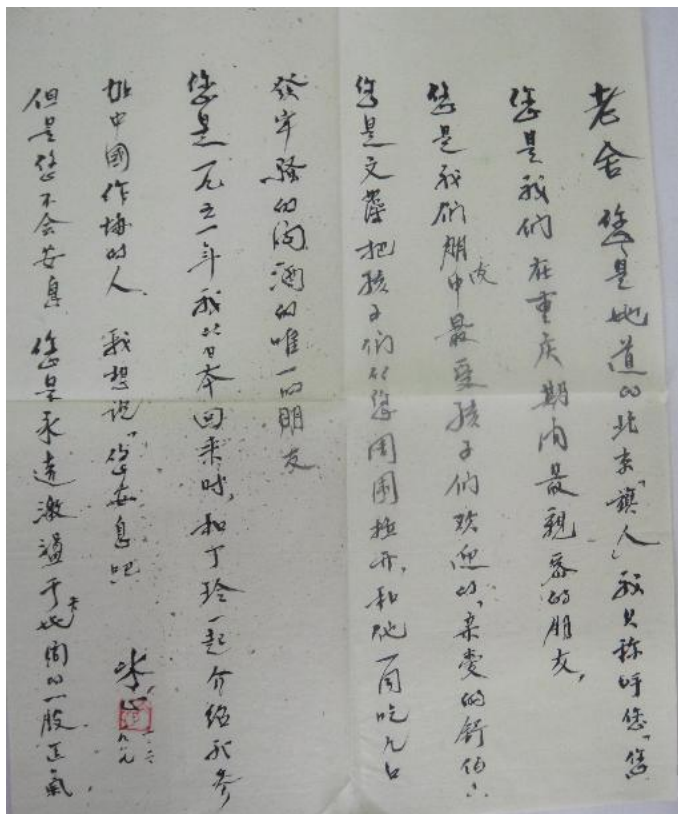 老舍 您是地道的北京“旗人”我只称呼您“您”
您是我们在重庆期间最亲密的朋友,
您是我们朋友中最受孩子们欢迎的“亲爱的舒伯伯”
您是文藻把孩子们从您周围拉开,和他一同吃几口
發牢骚的闷酒的唯一的朋友
您是一九五一年我从日本回来时,和丁玲一起介绍我参
加中國作协的人 我想说“您安息吧”
但是您不会安息 您是永远激盪于天地间的一股正氣
冰心